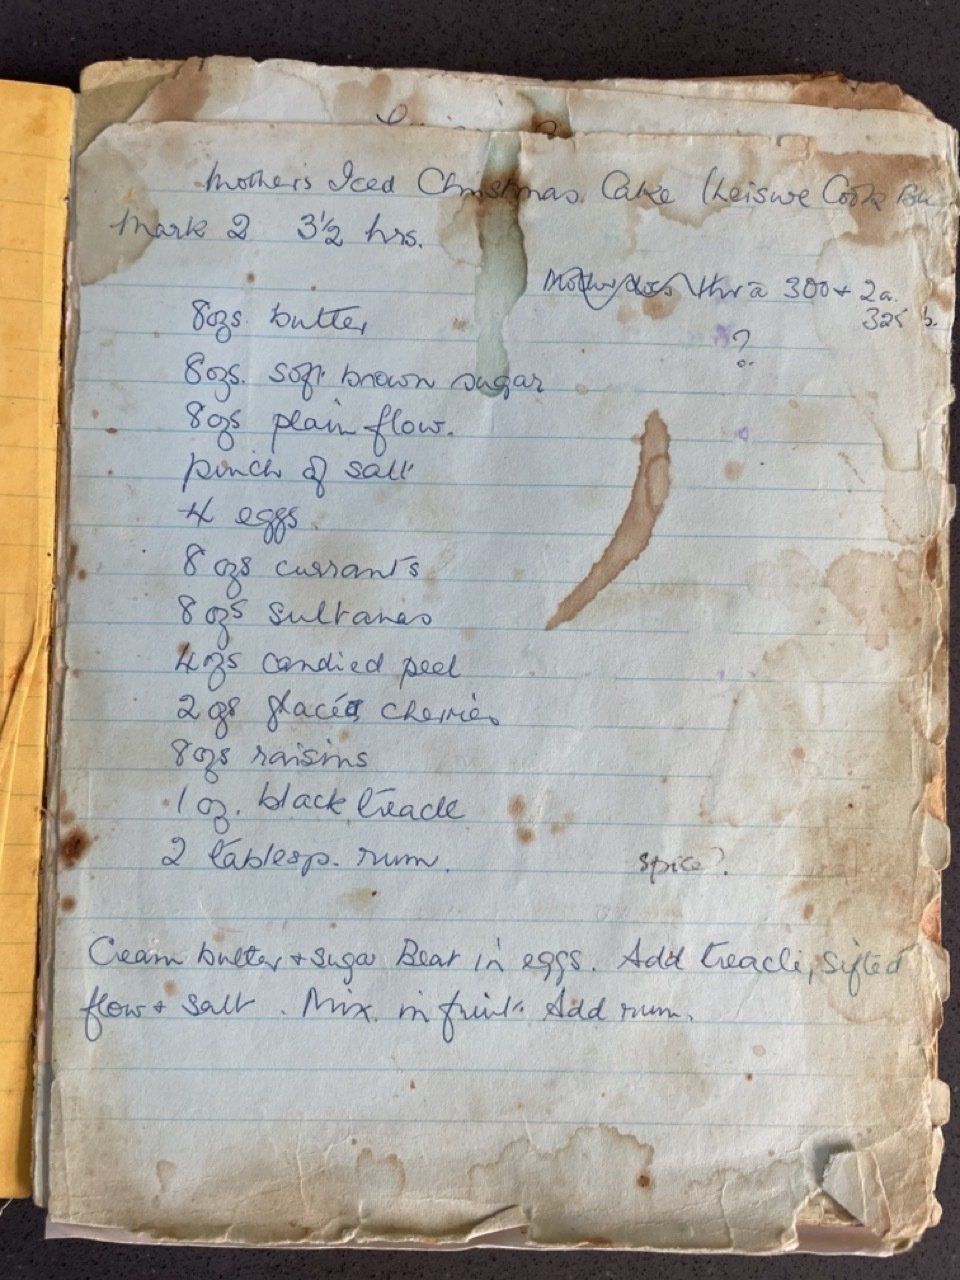 Mother's Iced Christmas Cake (Leisure Cook Book
Mark 2 3½ hrs.
Mother does this a 300 + 2a.
325 b.
?
8ozs. butter
8ozs. soft brown sugar
8ozs plain flour.
pinch of salt
4 eggs
8 ozs currants
8 ozs sultanas
4ozs candied peel
2 ozs glacé cherries
8ozs raisins
1 oz. black treacle
2 tablesp. rum.
spice?
Cream butter + sugar Beat in eggs. Add treacle, sifted
flour + salt. Mix in fruit. Add rum.